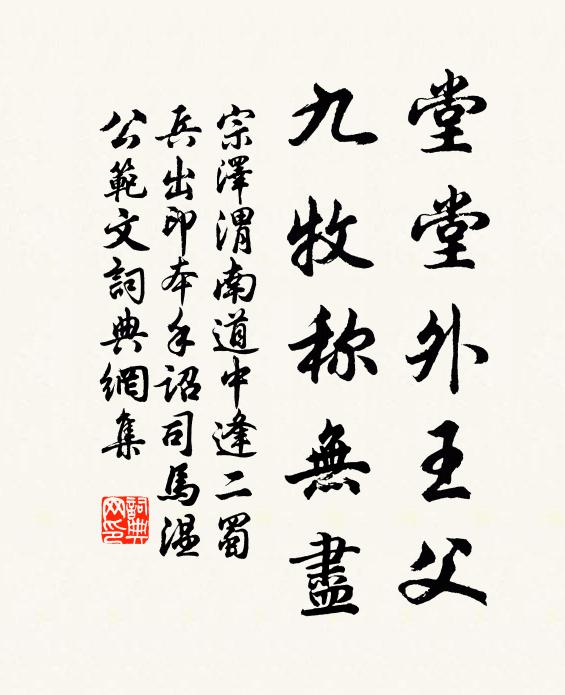 堂堂外王父
九牧称無盡
宗澤渭南道中逢二蜀
兵出印本手詔司馬温
公範文詞典網集
詞典網印